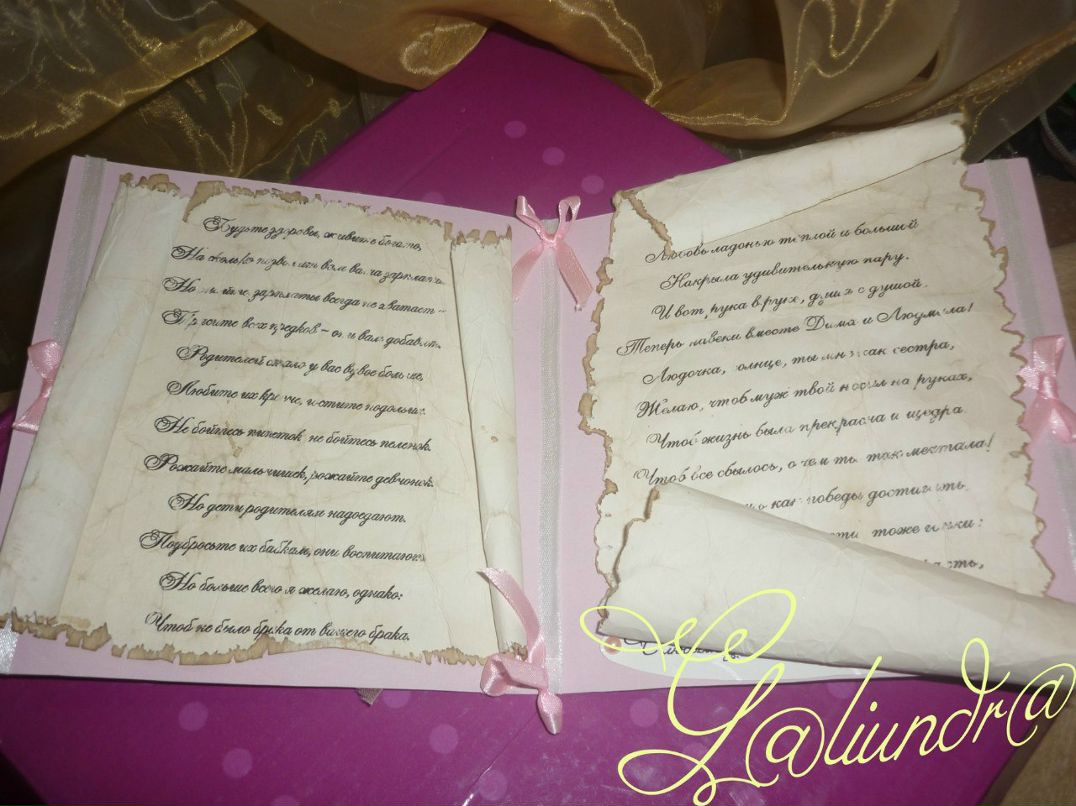 Будьте здоровы, живите богато,
На сколько позволит вам ваша зарплата.
Но зарплаты всегда не хватает –
Трясите всех предков – они вам добавят.
Родителей стало у вас вдвое больше,
Любите их крепче, гостите подольше.
Не бойтесь пипеток, не бойтесь пеленок.
Рожайте мальчишек, рожайте девчонок.
Но дети родителям надоедают.
Подбросьте их бабкам, они воспитают.
Но больше всего я желаю, однако:
Чтоб не было брака от вашего брака.
Любовь ладонью теплой и большой
Накрыла удивительную пару.
И вот, рука в руке, душа с душой.
Теперь навеки вместе Дима и Людмила!
Людочка, солнце, ты мне как сестра,
Желаю, чтоб муж твой носил на руках,
Чтоб жизнь была прекрасна и щедра.
Чтоб все сбылось, о чем ты так мечтала!
как победы достигать
тоже
L@liundr@